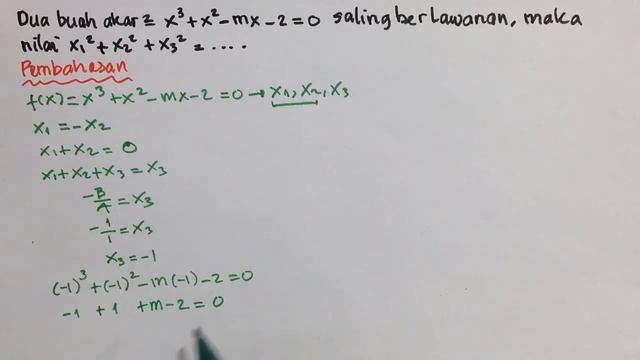 Dua buah akar² x³+x²-mx-2=0 saling berlawanan, maka
nilai x₁²+x₂²+x₃² = ....
Pembahasan
f(x)=x³+x²-mx-2=0→x₁,x₂,x₃
x₁=-x₂
x₁+x₂=0
x₁+x₂+x₃=x₃
-B/A=x₃
-1/1=x₃
x₃=-1
(-1)³+(-1)²-m(-1)-2=0
-1+1+m-2=0